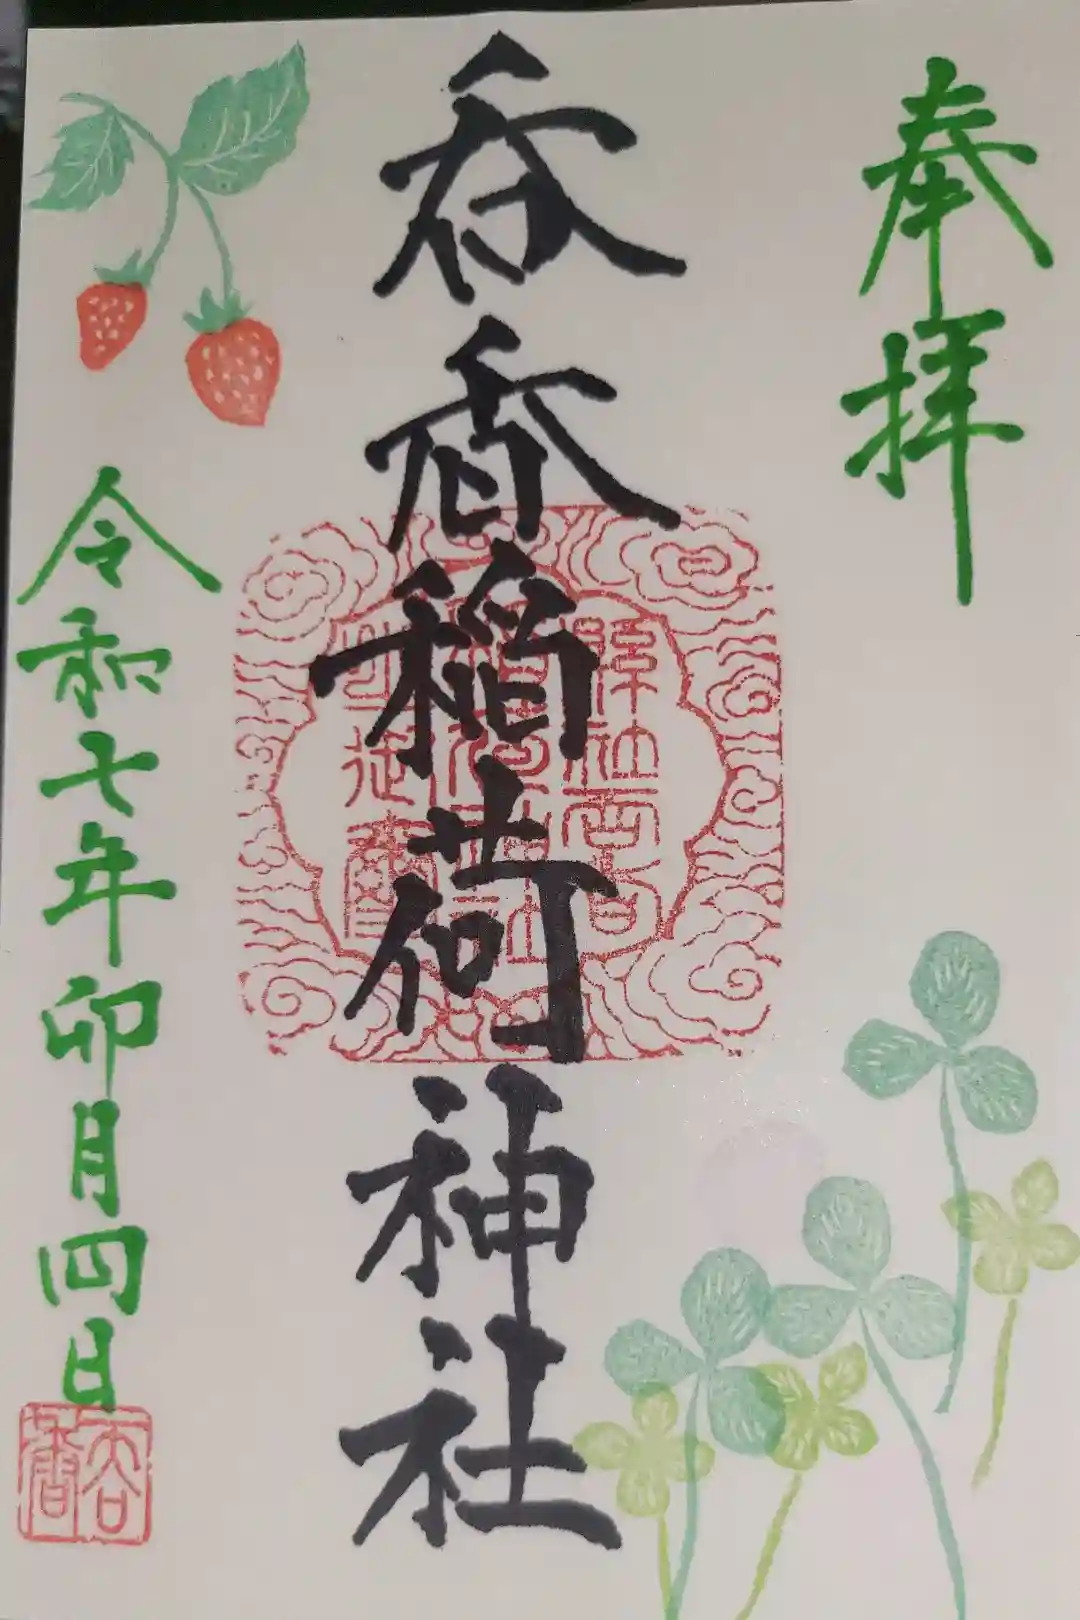 奉拝
呑香稲荷神社
令和七年卯月四日
呑香